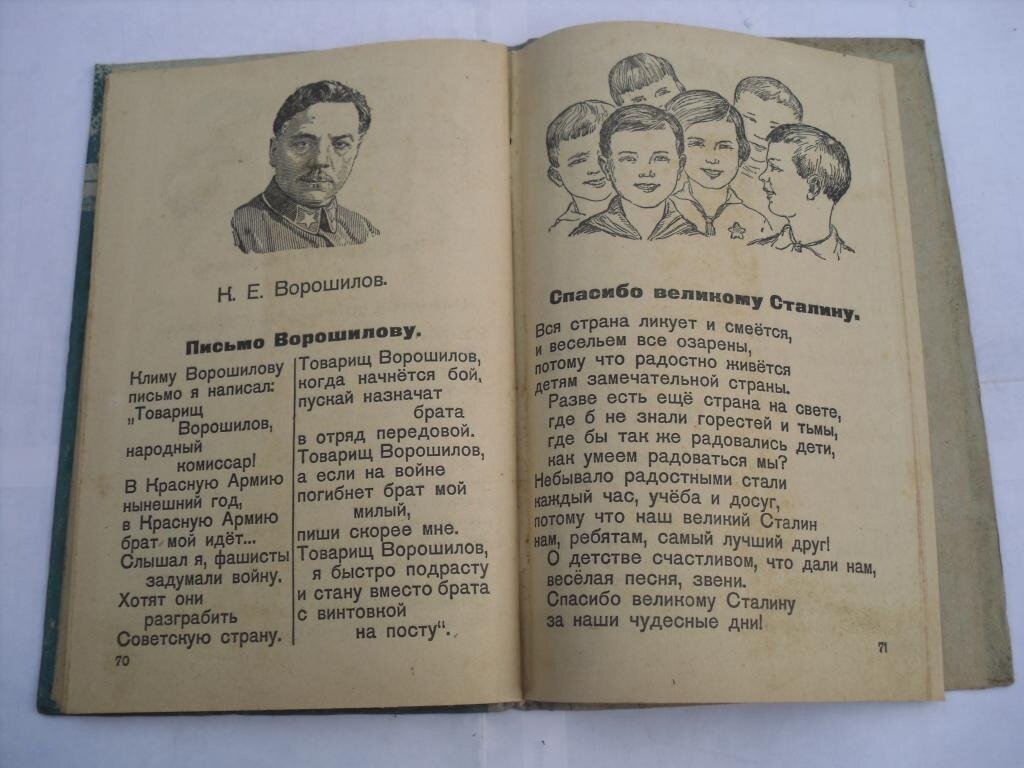 К. Е. Ворошилов.
Письмо Ворошилову.
Климу Ворошилову
письмо я написал:
„Товарищ
Ворошилов,
народный
комиссар!
В Красную Армию
нынешний год,
в Красную Армию
брат мой идёт...
Слышал я, фашисты
задумали войну.
Хотят они
разграбить
Советскую страну.
Товарищ Ворошилов,
когда начнётся бой,
пускай назначат
брата
в отряд передовой.
Товарищ Ворошилов,
а если на войне
погибнет брат мой
милый,
пиши скорее мне.
Товарищ Ворошилов,
я быстро подрасту
и стану вместо брата
с винтовкой
на посту“.
70
Спасибо великому Сталину.
Вся страна ликует и смеётся,
и весельем все озарены,
потому что радостно живётся
детям замечательной страны.
Разве есть ещё страна на свете,
где б не знали горестей и тьмы,
где бы так же радовались дети,
как умеем радоваться мы?
Небывало радостными стали
каждый час, учёба и досуг,
потому что наш великий Сталин
нам, ребятам, самый лучший друг!
О детстве счастливом, что дали нам,
весёлая песня, звени.
Спасибо великому Сталину
за наши чудесные дни!
71